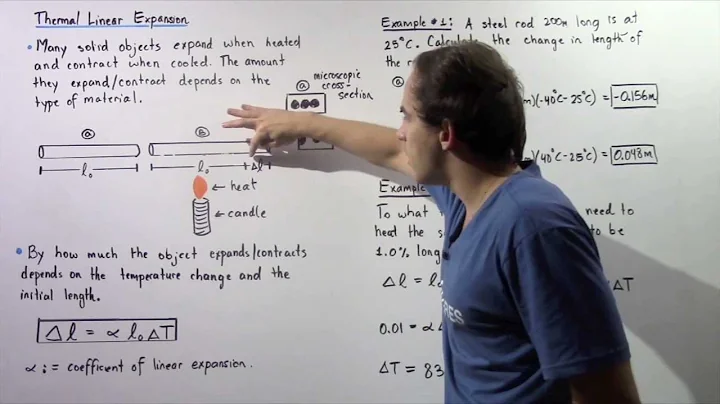 Thermal Linear Expansion
• Many solid objects expand when heated
and contract when cooled. The amount
they expand/contract depends on the
type of material.
a microscopic
cross-
section
a
B
l₀
l₀
Δl
← heat
← candle
• By how much the object expands/contracts
depends on the temperature change and the
initial length.
Δl = α l₀ ΔT
α := coefficent of linear expansion.
Example #1: A steel rod 200m long is at
25°C. Calculate the change in length of
the
a
m)(-40°C-25°C) = -0.156m
m)(40°C-25°C) = 0.048m
Example
To what need to
heat the to be
1.0% long
Δl = l ΔT
0.01 = α
ΔT = 83
RES